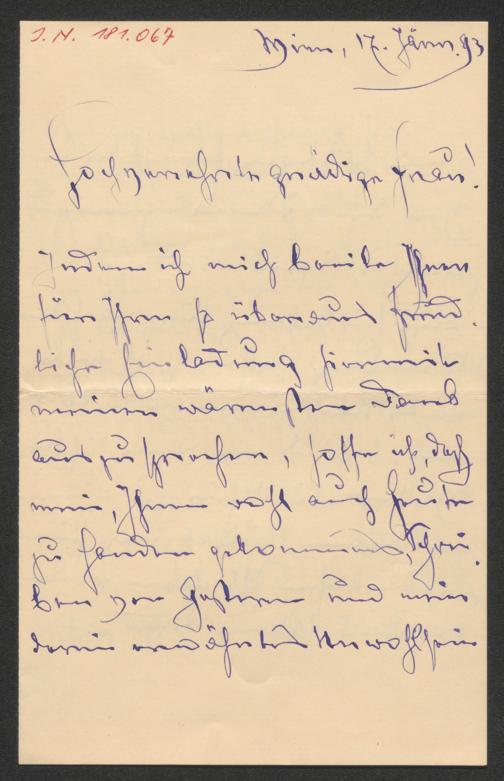 I.N. 181.067
Wien, 17. Jänn. 93
Hochverehrte gnädige Frau!
Indem ich mich beeile Ihnen
für Ihre so überaus freund-
liche Einladung hiermit
meinen wärmsten Dank
auszusprechen, hoffe ich, daß
mein, Ihnen wohl auch heute
zu Handen gekommenes, Schrei-
ben von gestern und mein
darin erwähntes Unwohlsein